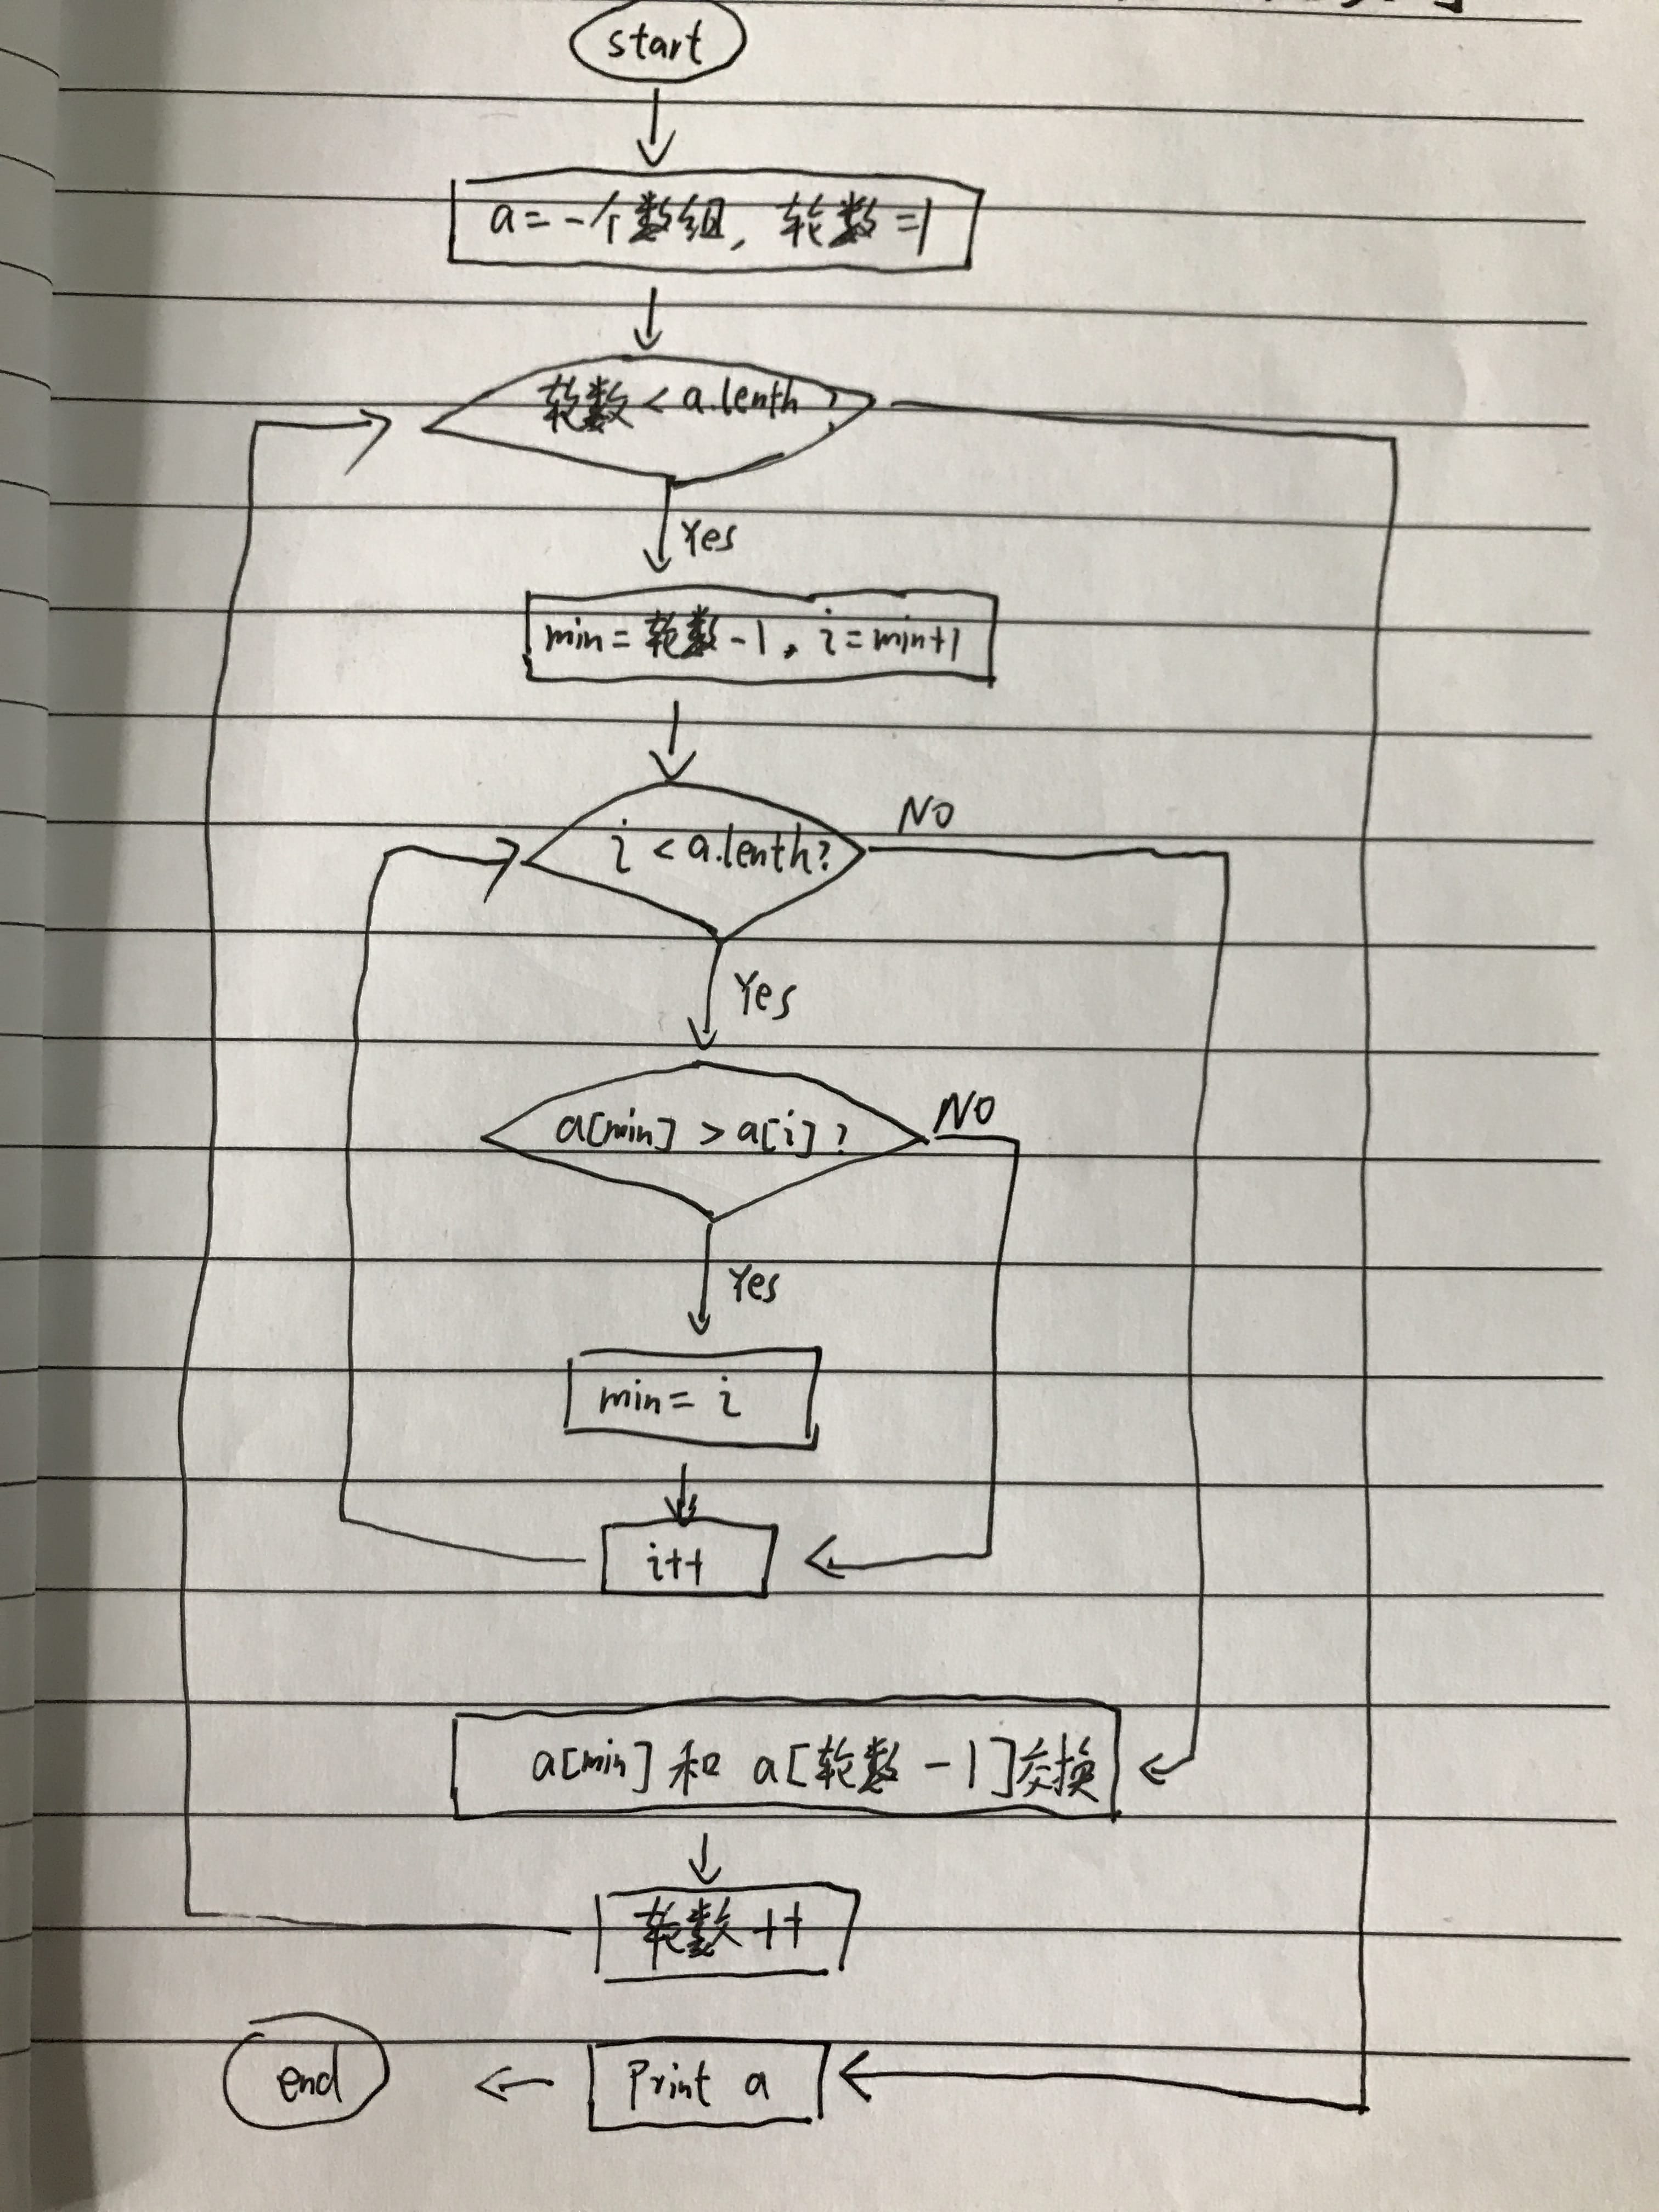 start
a=一个数组, 轮数=1
轮数<a.lenth?
Yes
min=轮数-1, i=min+1
NO
i<a.lenth?
Yes
NO
a[min]>a[i]?
Yes
min=i
i++
a[min]和 a[轮数-1]交换
轮数++
Print a
end